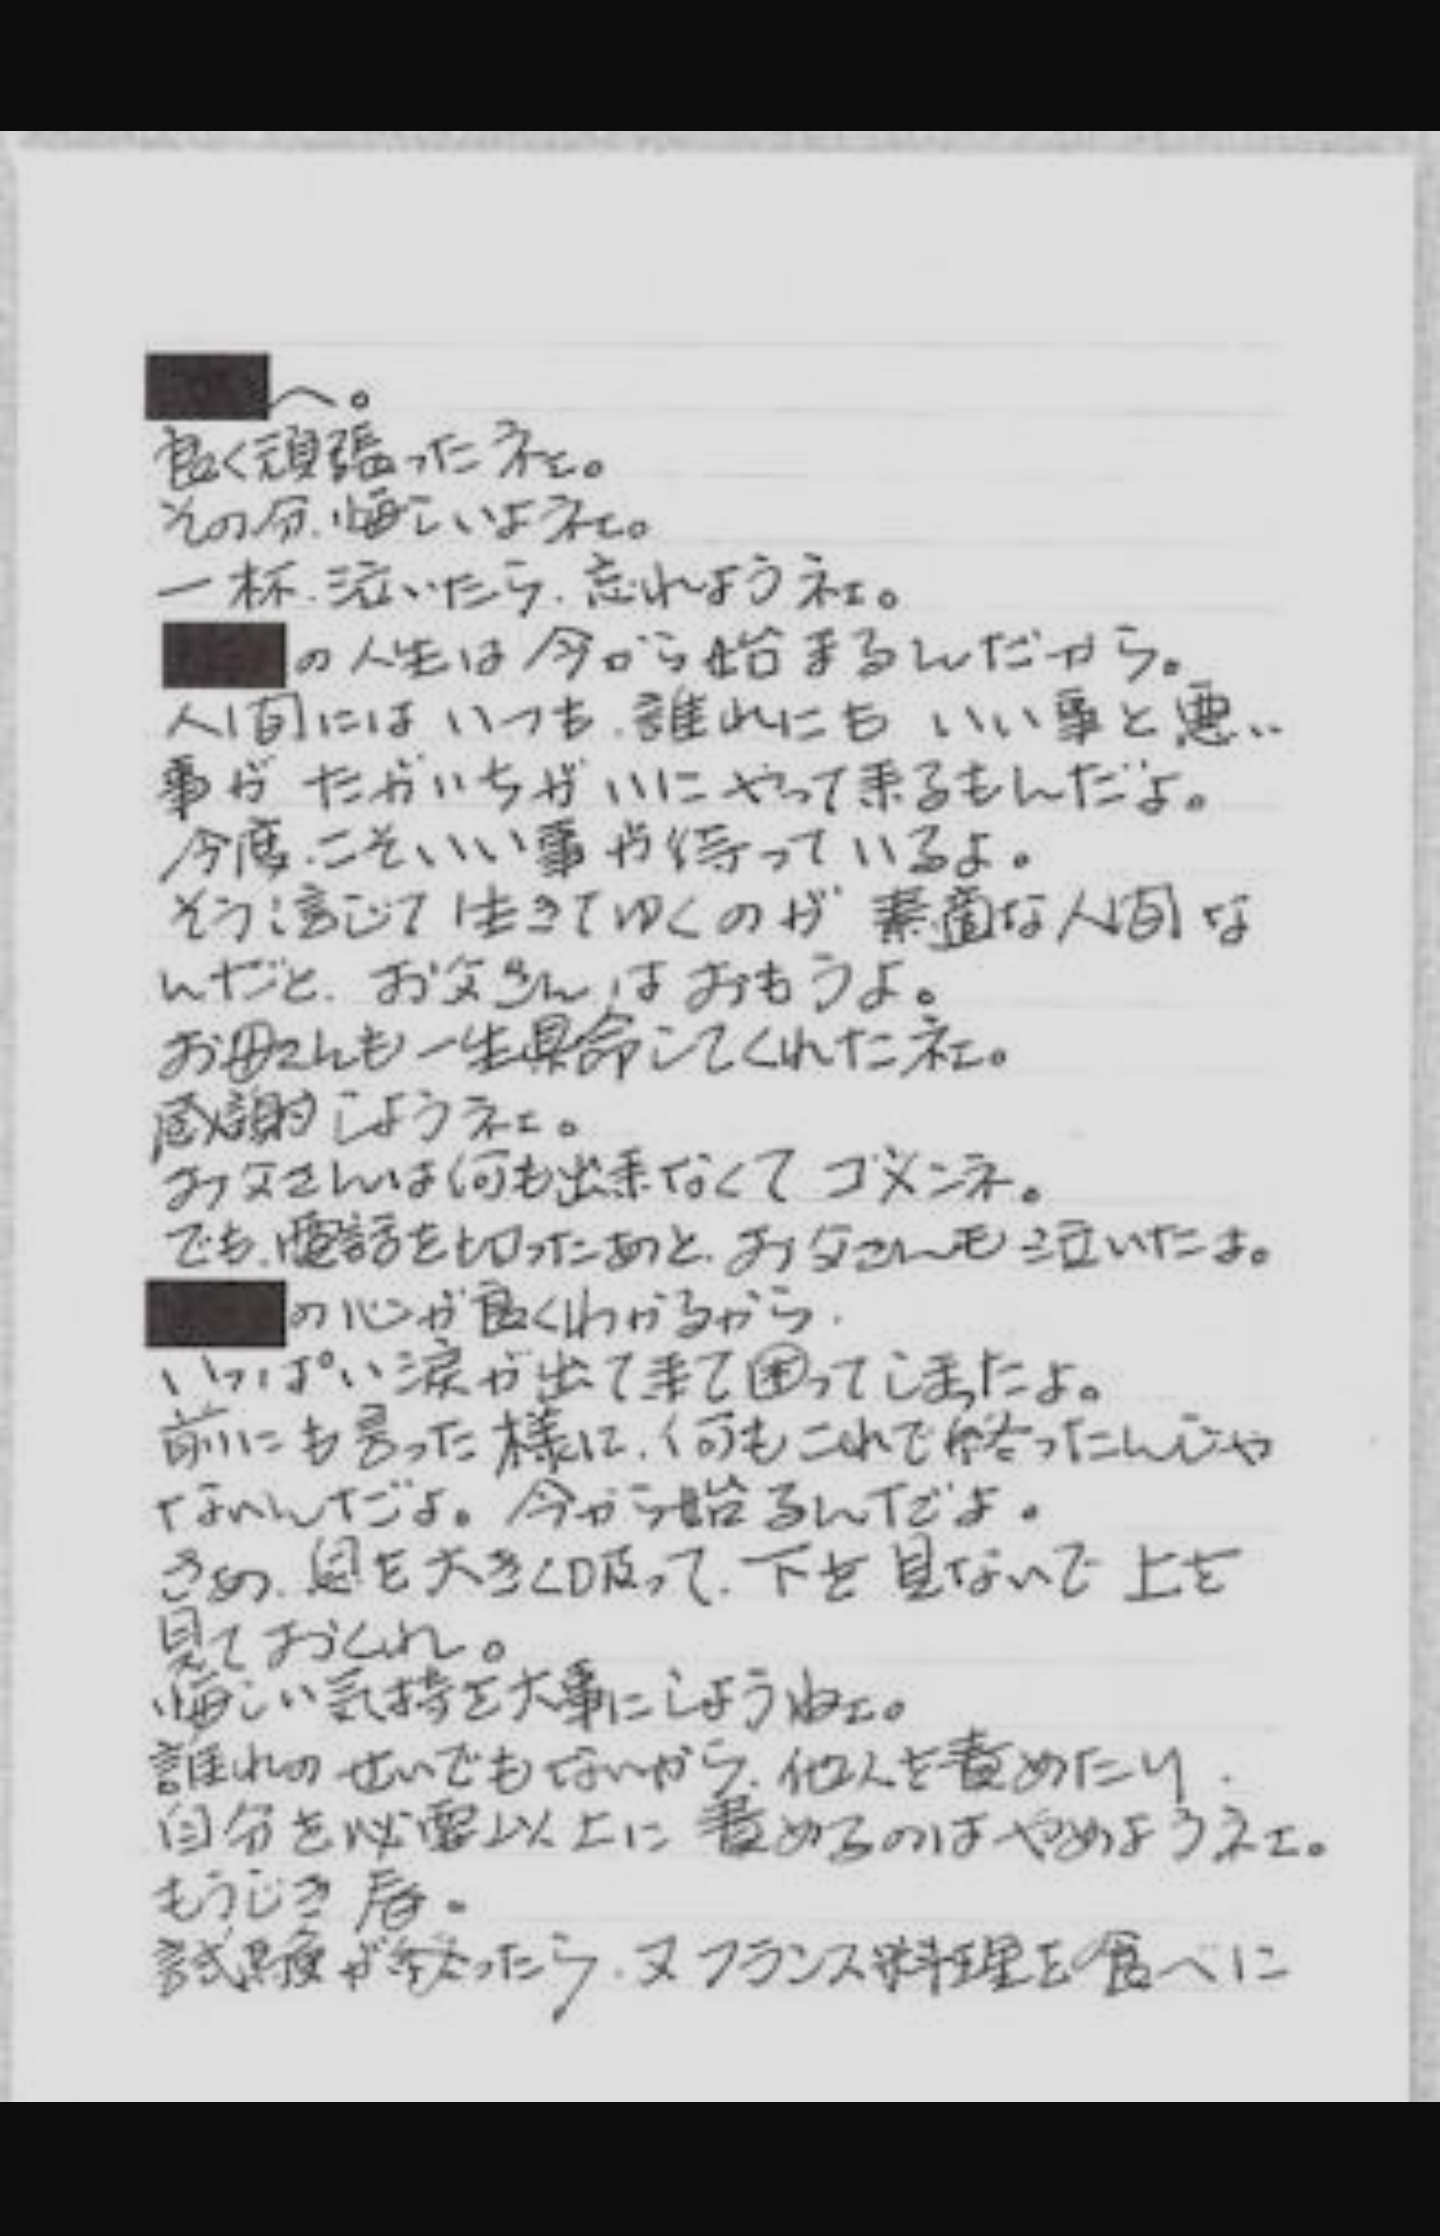 へ。
良く頑張ったネェ。
その分、悔しいよネェ。
一杯、泣いたら、忘れようネェ。
の人生は今から始まるんだから。
人間にはいつも、誰れにも いい事と悪い
事が たがいちがいに やって来るもんだよ。
今度、こそいい事が待っているよ。
そう信じて生きてゆくのが 素適な人間な
んだと、お父さんはおもうよ。
お母さんも一生県命してくれたネェ。
感謝しようネェ。
お父さんは何も出来なくて ゴメンネ。
でも、電話を切ったあと、お父さんも泣いたよ。
の心が良くわかるから、
いっぱい涙が出て来て困ってしまったよ。
前にも言った様に、何もこれで終ったんじゃ
ないんだよ。今から始るんだよ。
さあ、息を大きく吸って、下を見ないで上を
見ておくれ。
悔しい気持を大事にしようねェ。
誰れのせいでもないから、他人を責めたり、
自分を必要以上に責めるのはやめようネェ。
もうじき春。
試験が終ったら、又フランス料理を食べに